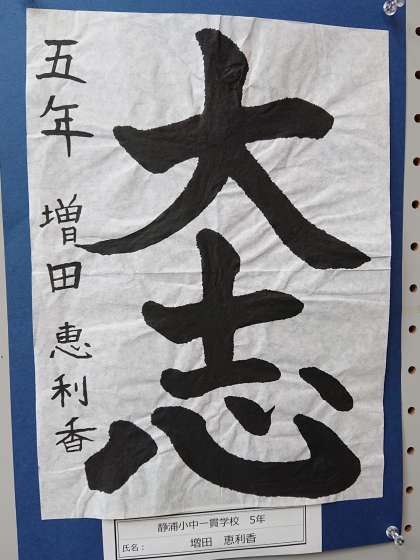 大志
五年 増田恵利香
静浦小中一貫学校 5年
氏名: 増田 恵利香